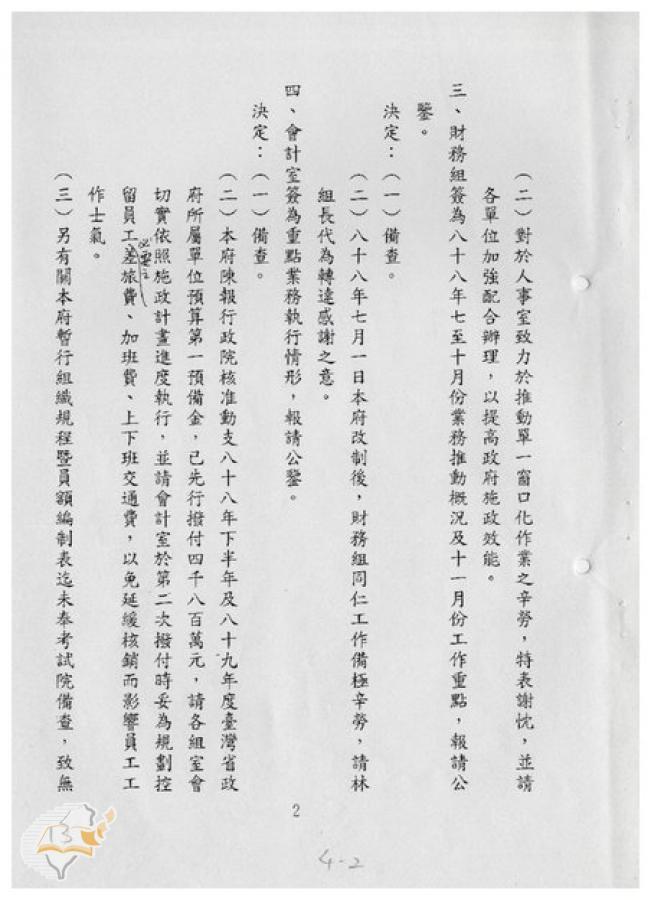 （二）對於人事室致力於推動單一窗口化作業之辛勞，特表謝忱，並請
各單位加強配合辦理，以提高政府施政效能。
三、財務組簽為八十八年七至十月份業務推動概況及十一月份工作重點，報請公
鑒。
決定：（一）備查。
（二）八十八年七月一日本府改制後，財務組同仁工作備極辛勞，請林
組長代為轉達感謝之意。
四、會計室簽為重點業務執行情形，報請公鑒。
決定：（一）備查。
（二）本府陳報行政院核准動支八十八年下半年及八十九年度臺灣省政
府所屬單位預算第一預備金，已先行撥付四千八百萬元，請各組室會
切實依照施政計畫進度執行，並請會計室於第二次撥付時妥為規劃控
留員工必要之差旅費、加班費、上下班交通費，以免延緩核銷而影響員工工
作士氣。
（三）另有關本府暫行組織規程暨員額編制表迄未奉考試院備查，致無
2
4-2
13